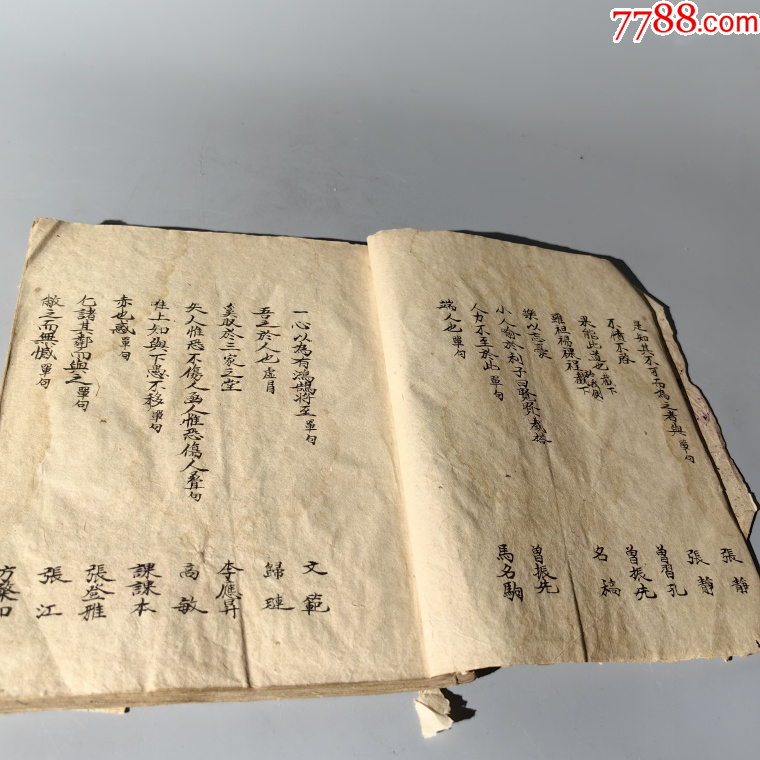 7788.com
是知其不可而為之者與 單句 張靜
不憤不啟 張靜
果能此道也 截下 曾習孔
雖袒裼裸裎 截下 曾振先
樂以忘憂 名稿
小人喻於利子曰賢賢 截搭 曾振先
人力不至於此 單句 馬名駒
端人也 單句
一心以為有鴻鵠將至 單句 文範
吾之於人也 虛冒 歸璉
奚取於三家之堂 李應昇
矢人惟恐不傷人函人惟恐傷人 疊句 高敏
唯上知與下愚不移 單句 課課本
赤也惑 單句 張登雅
仁諸其鄰而與之 單句 張江
敝之而無憾 單句